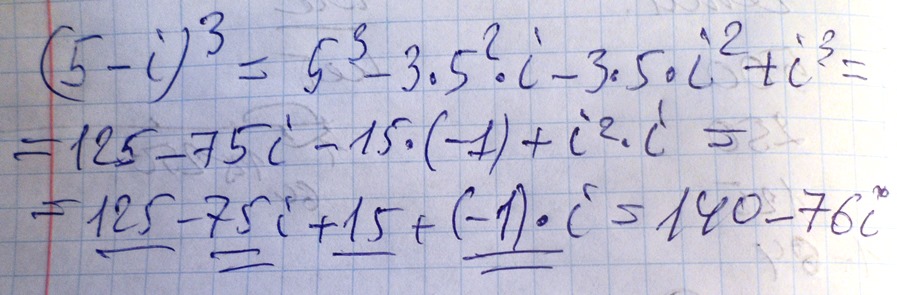 (5-i)³ = 5³-3·5²·i-3·5·i²+i³=
=125-75i-15·(-1)+i²·i =
=125-75i+15+(-1)·i=140-76i